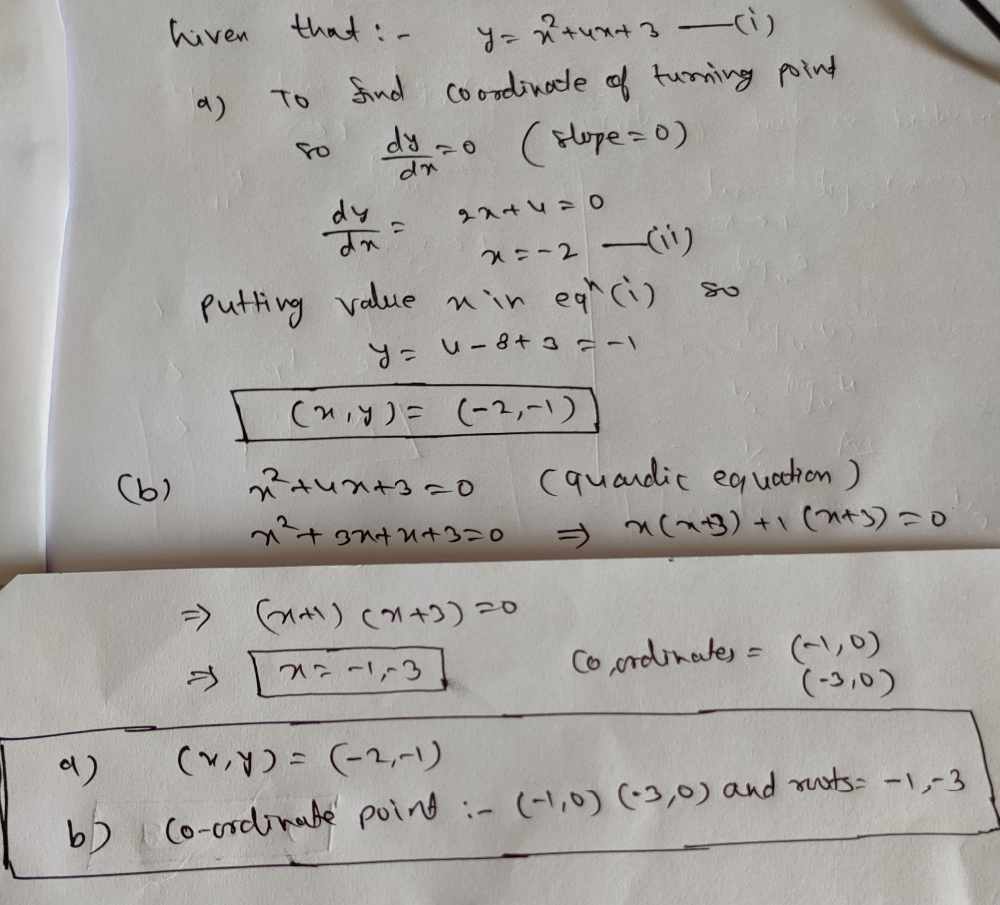 Given that :- y = x²+4x+3 —(i)
a) To find coordinate of turning point
so dy/dx = 0 (slope = 0)
dy/dx = 2x+4 = 0
x = -2 —(ii)
putting value x in eqⁿ (i) so
y = 4-8+3 = -1
(x,y) = (-2,-1)
(b) x²+4x+3 = 0 (quardic equation)
x²+3x+x+3=0 ⇒ x(x+3)+1(x+3)=0
⇒ (x+1) (x+3) = 0
⇒ x = -1,-3 Co,ordinates = (-1,0)
(-3,0)
a) (x,y) = (-2,-1)
b) Co-ordinate point :- (-1,0) (-3,0) and roots = -1,-3